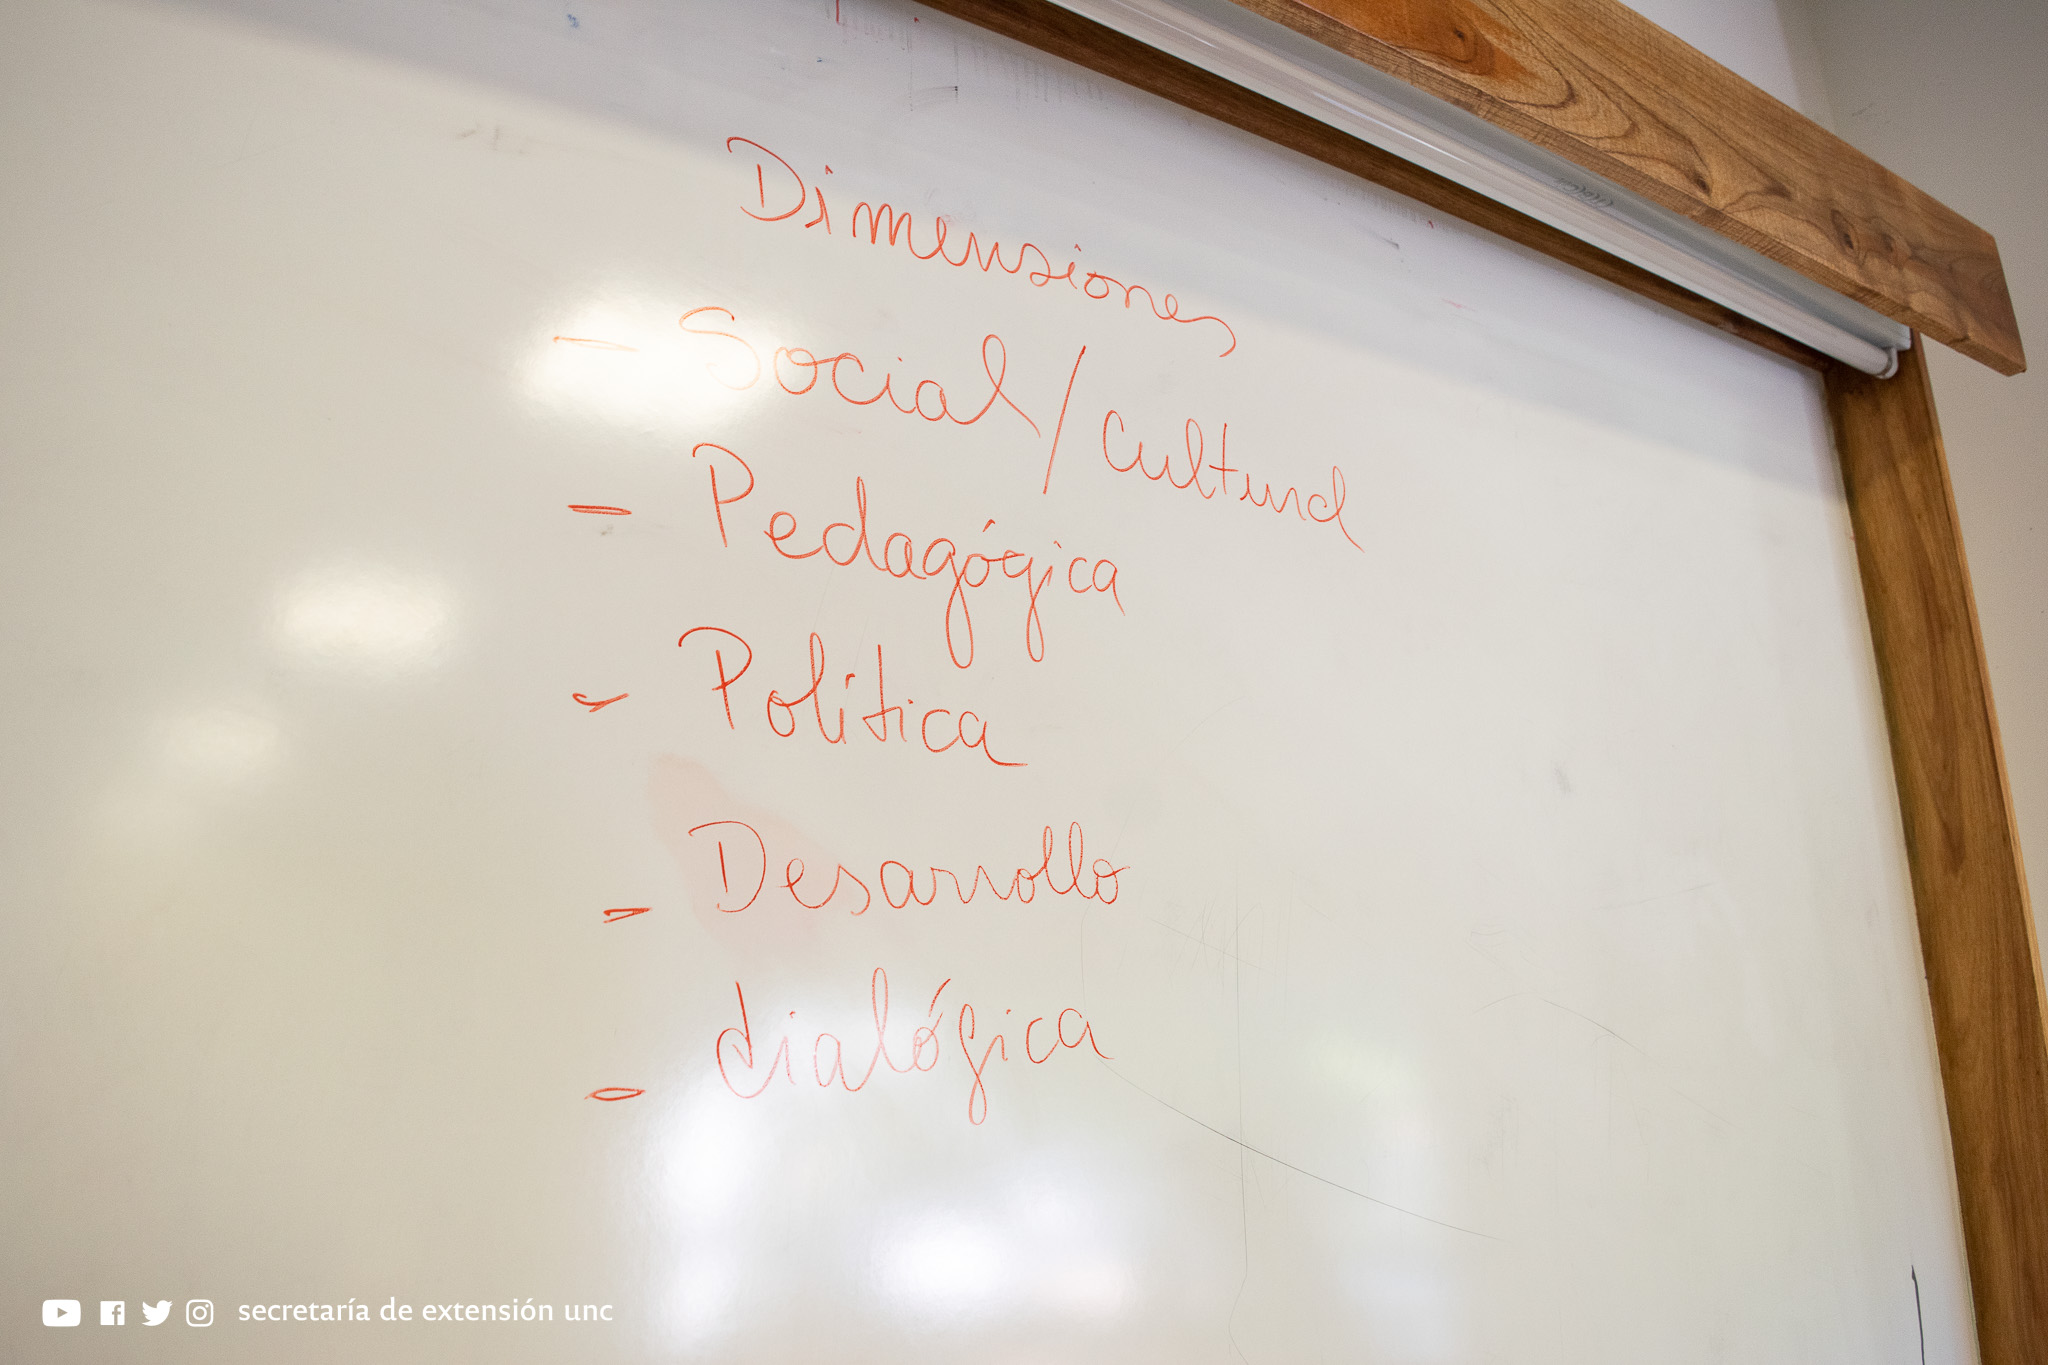 Dimensiones
- Social / cultural
- Pedagógica
- Política
- Desarrollo
- dialógica
secretaría de extensión unc